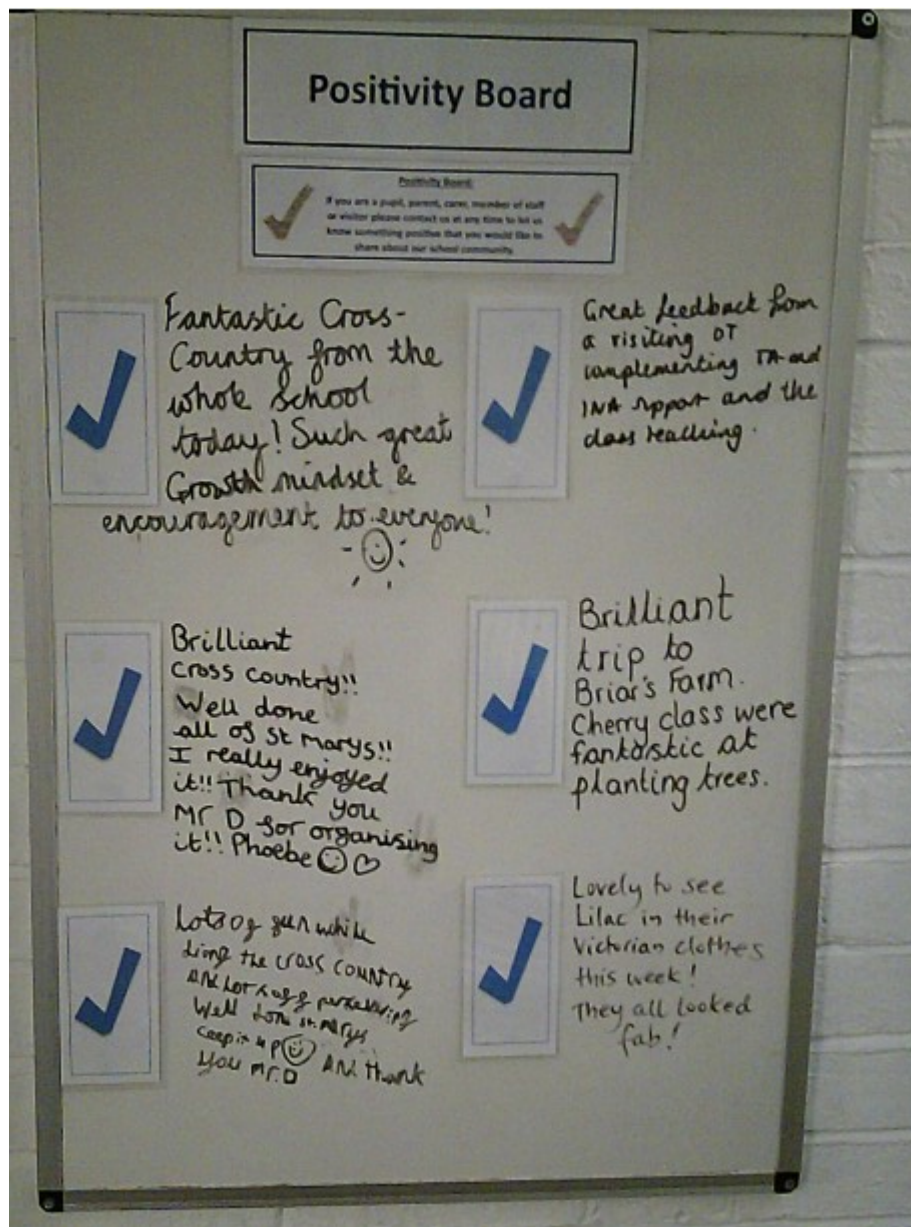 Positivity Board
Positivity Board:
If you are a pupil, parent, carer, member of staff
or visitor please contact us at any time to let us
know something positive that you would like to
share about our school community.
Fantastic Cross-
Country from the
whole School
today! Such great
Growth mindset &
encouragement to everyone!
Great feedback from
a visiting OT
complementing TA and
INA support and the
class teaching.
Brilliant
cross country!!
Well done
all of st marys!!
I really enjoyed
it!! Thank you
Mr D for organising
it!! Phoebe
Brilliant
trip to
Briar's Farm.
Cherry class were
fantastic at
planting trees.
Lots of fun while
the cross country
Well done st marys
keep it up And thank
you Mr.D
Lovely to see
Lilac in their
Victorian clothes
this week!
They all looked
fab!